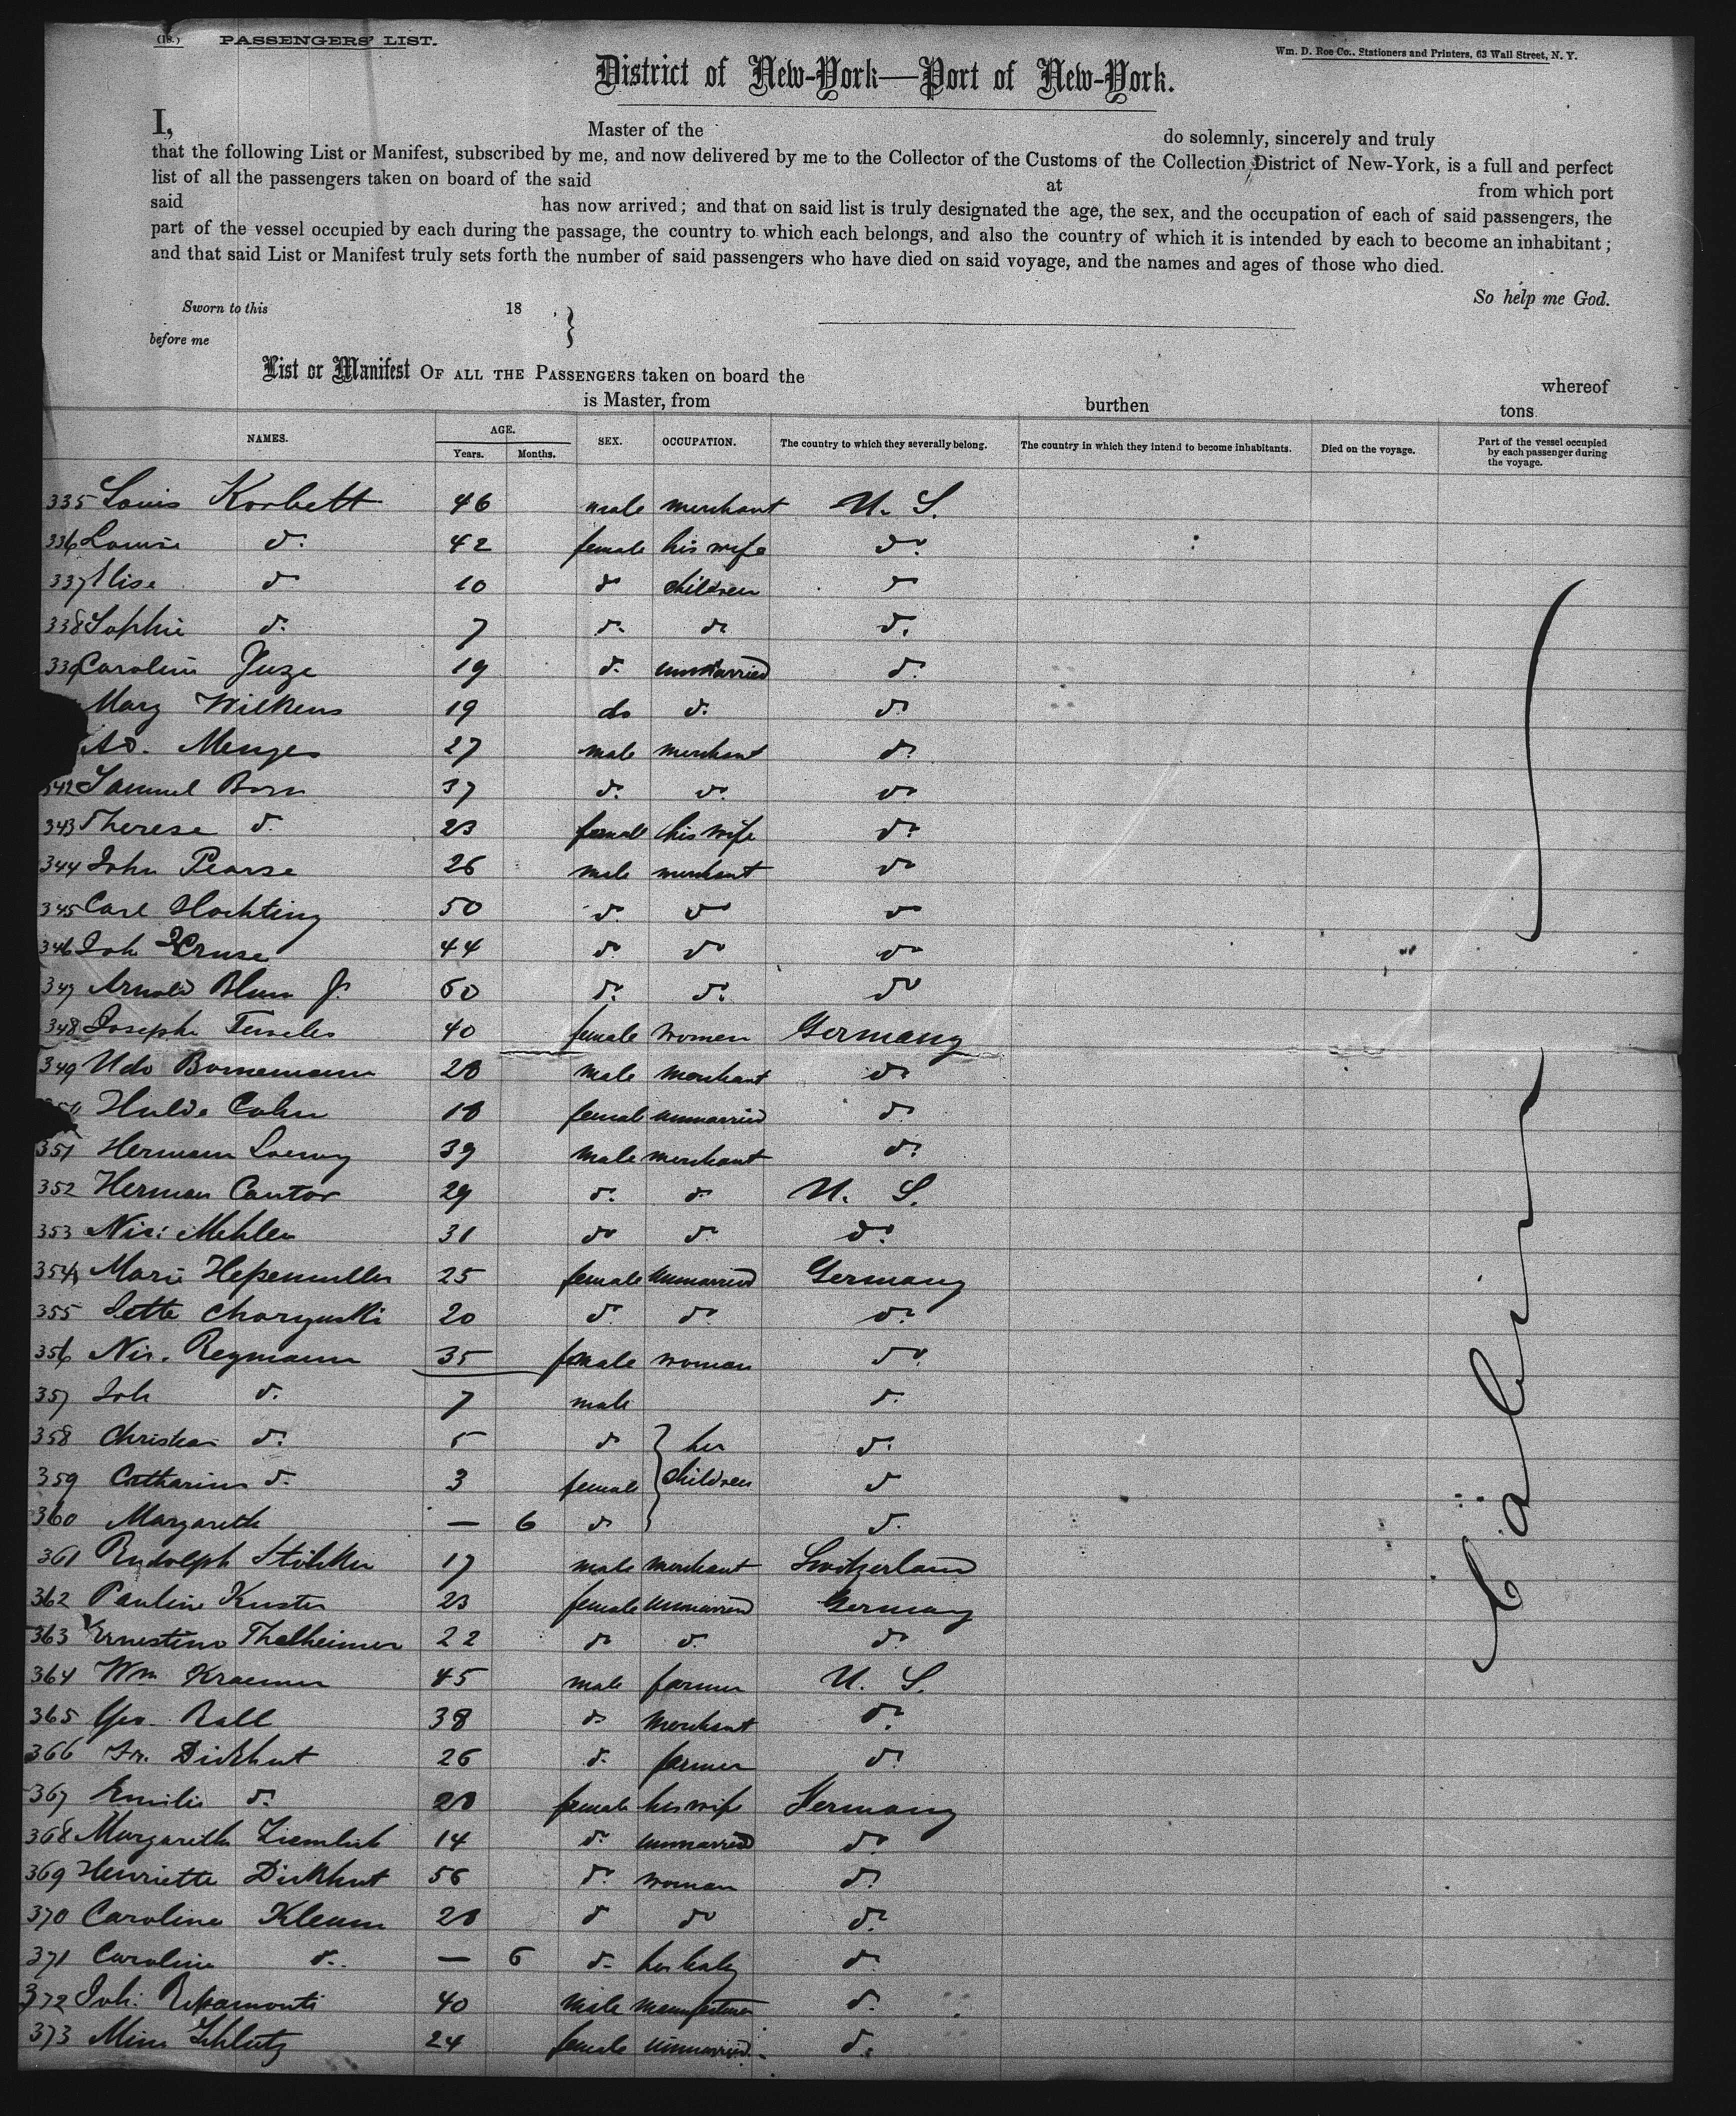 (18.) PASSENGERS' LIST.
Wm. D. Roe Co., Stationers and Printers, 63 Wall Street, N. Y.
District of New-York—Port of New-York.
I, Master of the do solemnly, sincerely and truly
that the following List or Manifest, subscribed by me, and now delivered by me to the Collector of the Customs of the Collection District of New-York, is a full and perfect
list of all the passengers taken on board of the said at from which port
said has now arrived; and that on said list is truly designated the age, the sex, and the occupation of each of said passengers, the
part of the vessel occupied by each during the passage, the country to which each belongs, and also the country of which it is intended by each to become an inhabitant;
and that said List or Manifest truly sets forth the number of said passengers who have died on said voyage, and the names and ages of those who died.
So help me God.
Sworn to this 18 .
before me
List or Manifest OF ALL THE PASSENGERS taken on board the whereof
is Master, from burthen tons
NAMES. AGE. Years. Months. SEX. OCCUPATION. The country to which they severally belong. The country in which they intend to become inhabitants. Died on the voyage. Part of the vessel occupied by each passenger during the voyage.
335 Louis Korbett 46 male merchant U. S.
336 Louise do. 42 female his wife do.
337 Elise do 10 do children do
338 Sophie do. 7 do. do do.
339 Caroline 19 do. unmarried do.
Mary Wilkens 19 do do. do.
Ad. Menges 27 male merchant do.
342 Samuel Born 37 do. do. do.
343 Therese do. 23 female his wife do.
344 John Pearse 26 male merchant do
345 Carl Hachting 50 do. do do
346 Joh Kruse 44 do. do do
347 Arnold Blum Jr. 60 do. do. do
348 Josephe 40 female women Germany
349 Udo Bornemann 28 male merchant do
350 Hulda Cohn 18 female unmarried do.
351 Hermann Loewy 39 male merchant do.
352 Herman Cantor 29 do. do U. S.
353 Nic: Mehler 31 do do. do.
354 Marie 25 female unmarried Germany
355 Jette 20 do. do. do.
356 Nic. Reymann 35 female woman do.
357 Joh do. 7 male do.
358 Christian do. 5 do her do.
359 Catharina do. 3 female children do
360 Margareth — 6 do do.
361 Rudolph 17 male merchant Switzerland
362 Pauline Kuster 23 female unmarried Germany
363 Ernestine Thalheimer 22 do do. do.
364 Wm Kraemer 45 male farmer U. S.
365 Geo. Rall 38 do merchant do.
366 Fr. Dickhut 26 do. farmer do.
367 Emilie do. 28 female his wife Germany
368 Margareth 14 do. unmarried do.
369 Henriette Dickhut 56 do. woman do.
370 Caroline Klemm 28 do do do.
371 Caroline do. — 6 do. her baby do.
372 Joh. 40 male do.
373 Mina Schlutz 24 female unmarried do.
Cabin